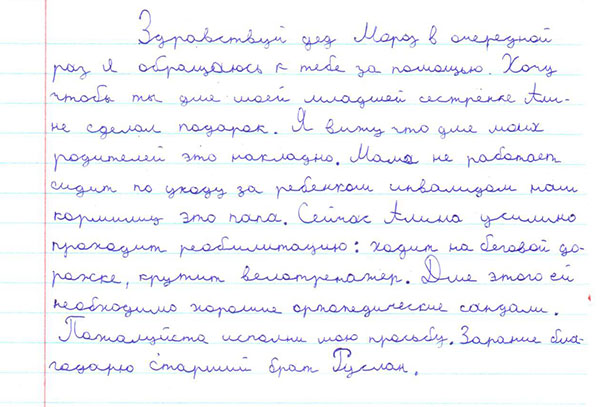 Здравствуй дед Мороз в очередной
раз я обращаюсь к тебе за помощью. Хочу
чтобы ты для моей младшей сестрёнке Али-
не сделал подарок. Я вижу что для моих
родителей это накладно. Мама не работает
сидит по уходу за ребенком инвалидом наш
кормилиц это папа. Сейчас Алина усилино
проходит реабилитацию: ходит на беговой до-
рожке, крутит велотренажер. Для этого ей
необходимо хорошие ортопедические сандали.
Пожалуйста исполни мою просьбу. Зарание бла-
годарю старший брат Руслан.